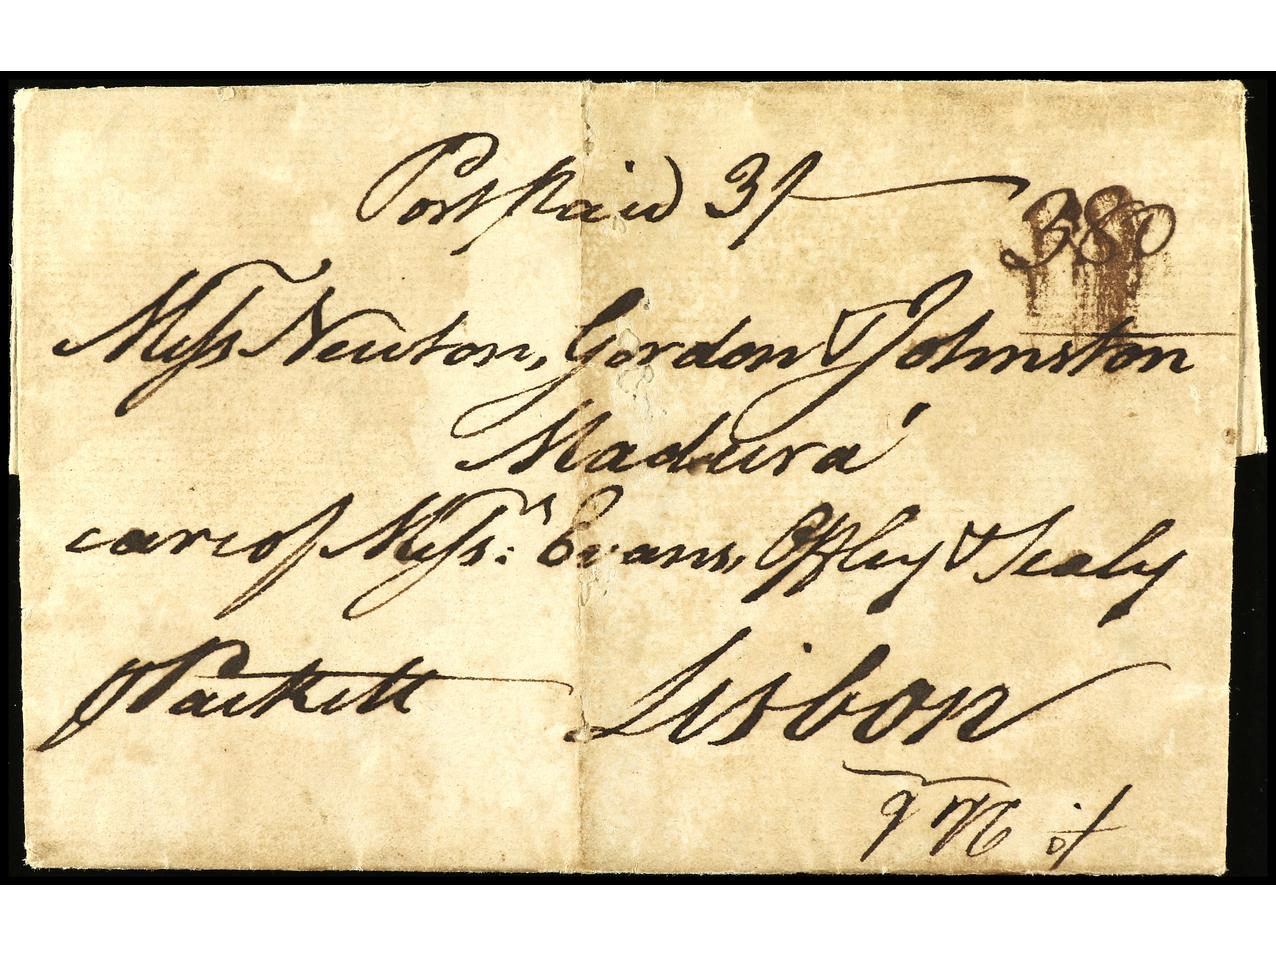 Post Paid 3/
380
Messrs Newton, Gordon & Johnston
Madeira
care of Messrs: Evans, Offley & Sealy
p Packett Lisbon